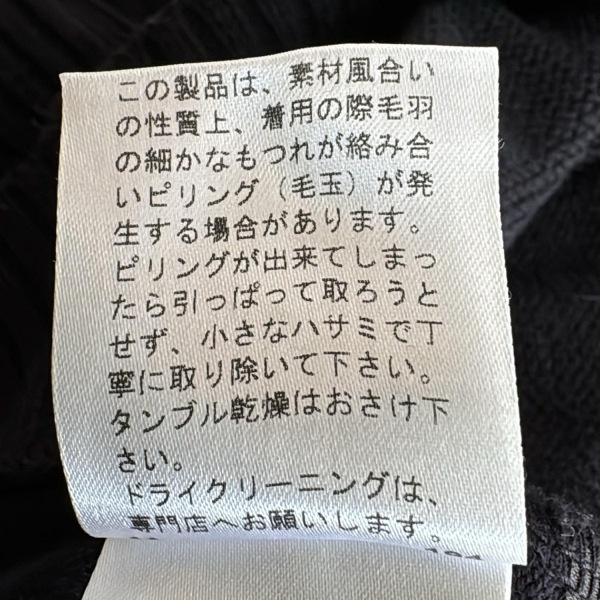 この製品は、素材風合い
の性質上、着用の際毛羽
の細かなもつれが絡み合
いピリング（毛玉）が発
生する場合があります。
ピリングが出来てしまっ
たら引っぱって取ろうと
せず、小さなハサミで丁
寧に取り除いて下さい。
タンブル乾燥はおさけ下
さい。
ドライクリーニングは、
専門店へお願いします。